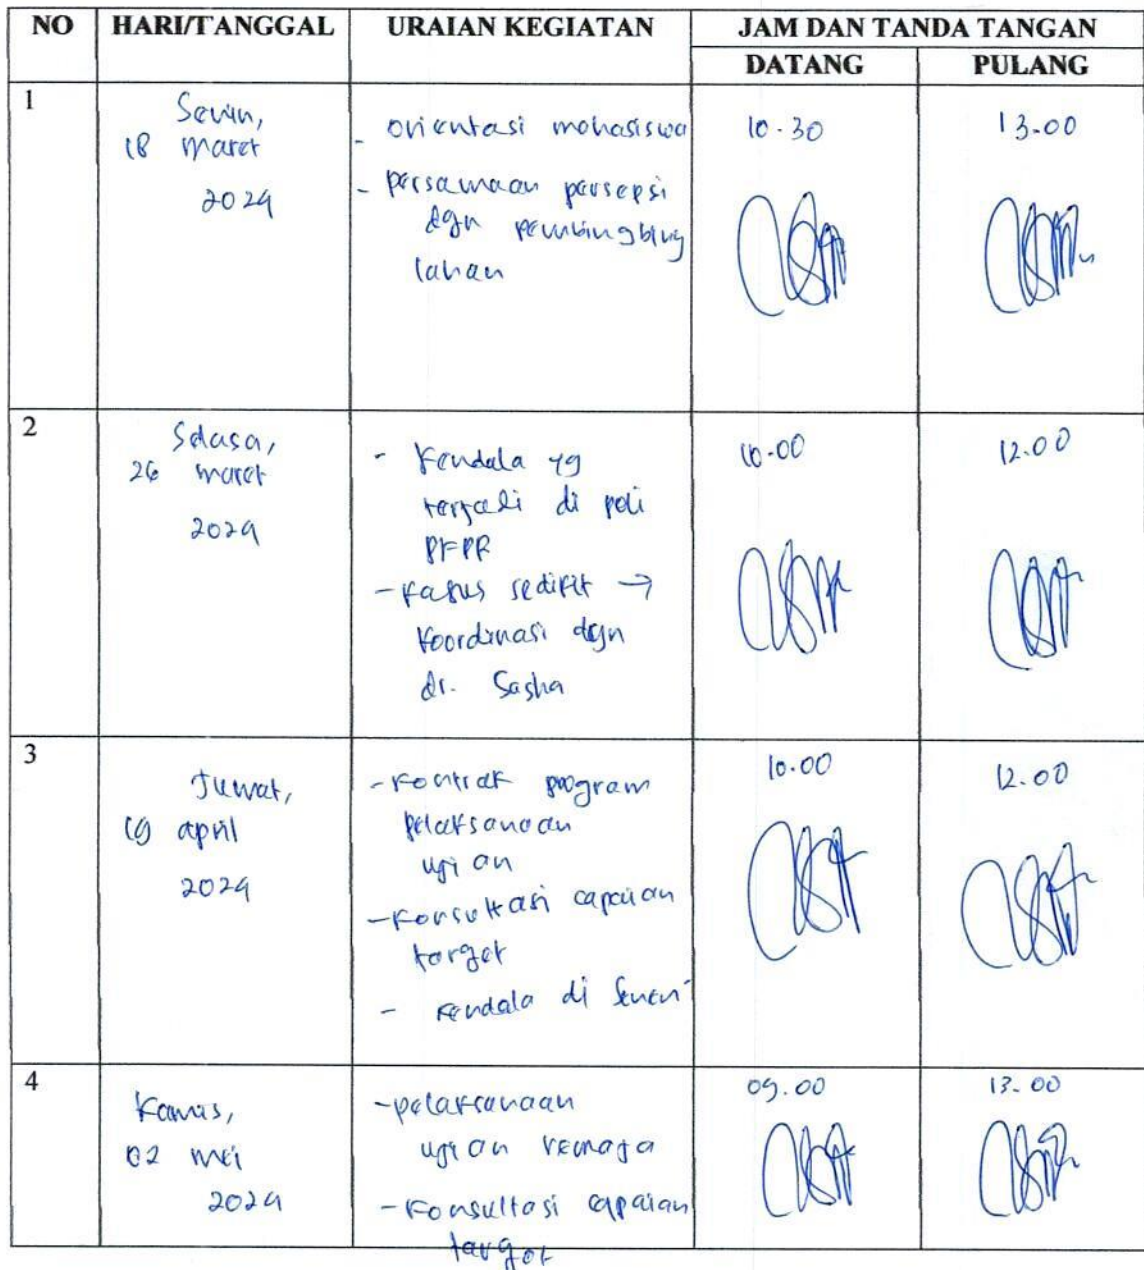 NO HARI/TANGGAL URAIAN KEGIATAN JAM DAN TANDA TANGAN
DATANG PULANG
1
Senin,
18 maret
2024
- orientasi mahasiswa
- persamaan persepsi
dgn pembingbing
lahan
10.30
13.00
2
Selasa,
26 maret
2024
- Kendala yg
terjadi di poli
PFPR
- kasus sedikit →
koordinasi dgn
dr. Sasha
10.00
12.00
3
Jumat,
19 april
2024
- kontrak program
pelaksanaan
ujian
- konsultasi capaian
target
- kendala di
10.00
12.00
4
Kamis,
02 mei
2024
- pelaksanaan
ujian remaja
- Konsultasi capaian
target
09.00
13.00